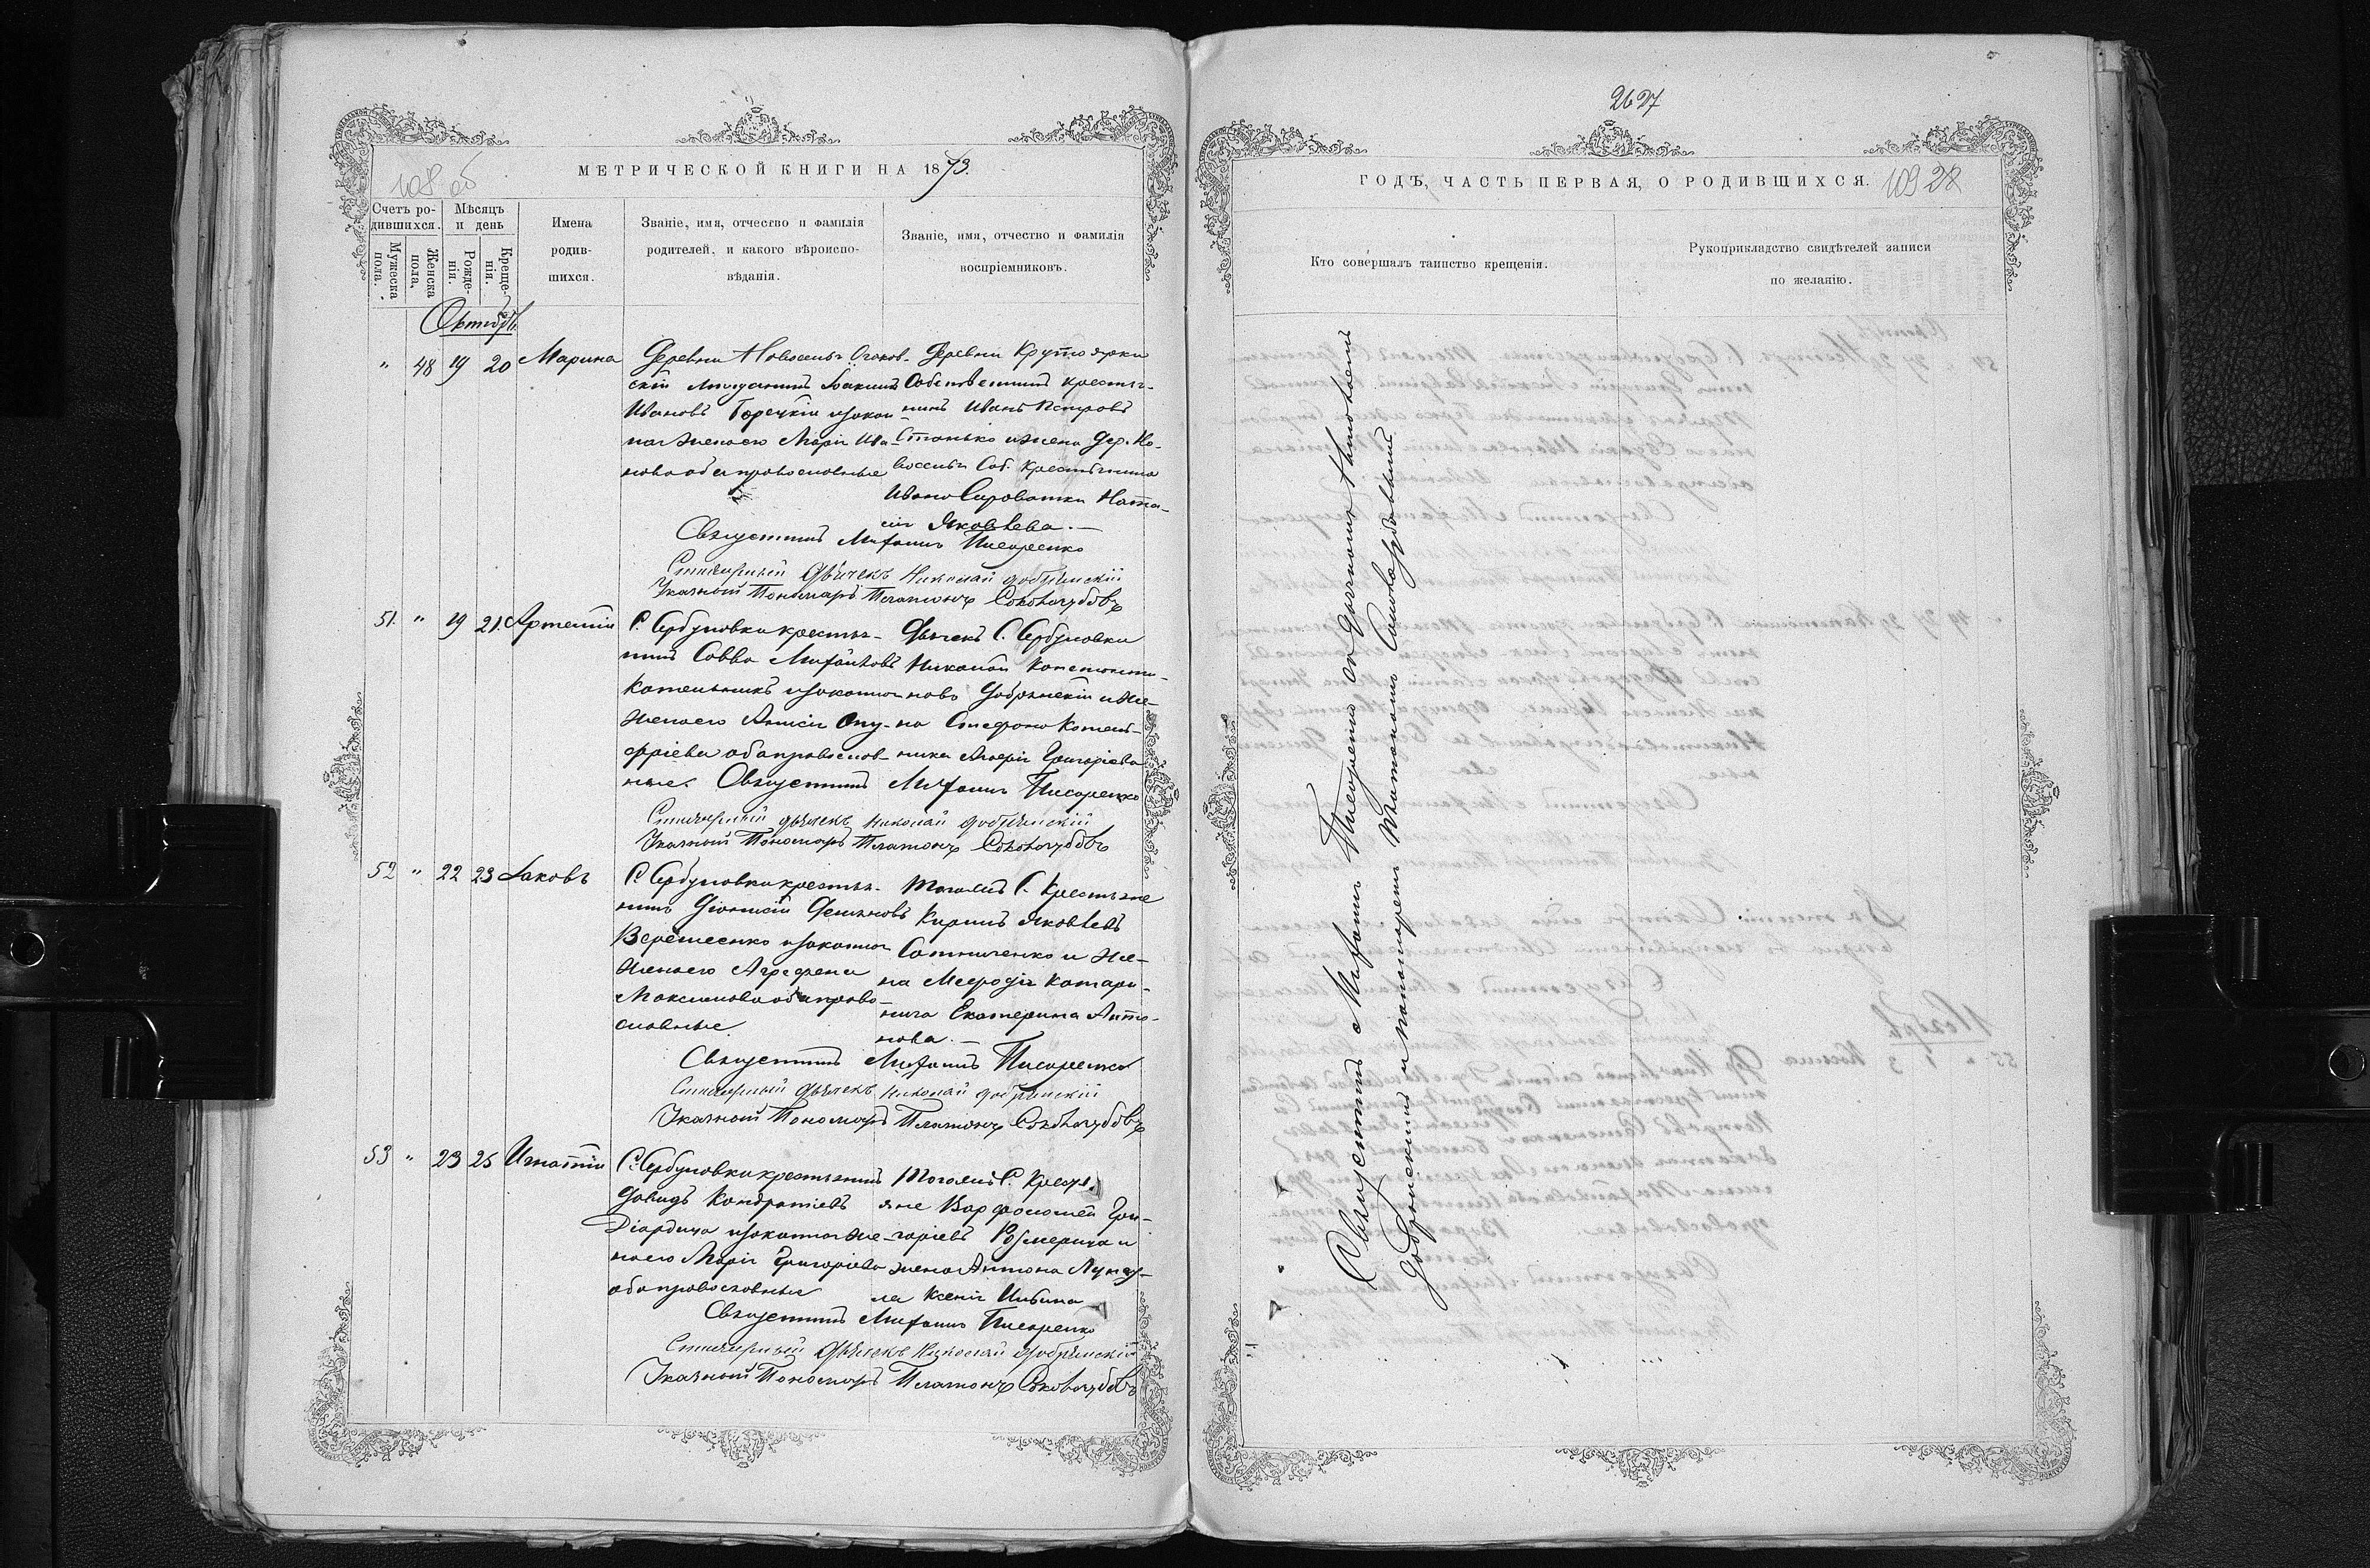 МЕТРИЧЕСКОЙ КНИГИ НА 1873.
108 об
Счетъ ро-
дившихся.
Мужеска
пола.
Женска
пола,
Мѣсяцъ
и день
Рожде-
нія.
Креще-
нія.
Имена
родив-
шихся.
Званіе, имя, отчество и фамилія
родителей, и какого вѣроиспо-
вѣданія.
Званіе, имя, отчество и фамилія
воспріемниковъ.
Октябрь
" 48 19 20 Марина
Деревни Новоселья Очаков-
скій мѣщанинъ Іоакимъ
Ивановъ Горечкій и закон
ная жена его Марія Ива-
нова оба православные
Деревни Крутоярки
Собственникъ крестья-
нинъ Иванъ Петровъ
Станько и жена дер. Но-
воселья Соб. крестьянина
Ивана Сироватки Ната-
лія Яковлева.
Священникъ Митрофанъ Писаренко
Стихарный Дьячекъ Николай Добрянскій
Указный Пономарь Платонъ Соковагубовъ
51. " 19 21. Артемій
С. Сербуловки крестья-
нинъ Савва Михайловъ
Котельникъ и законная
жена его Анисія Ону-
фріева оба православ-
ные.
Дьячекъ С. Сербуловки
Николай Константи-
новъ Добрянскій и же-
на Стефана Котель-
ника Марія Григоріева
Священникъ Митрофанъ Писаренко
Стихарный дьячекъ Николай Добрянскій
Указный Пономарь Платонъ Соковагубовъ
52 " 22 23 Іаковъ
С. Сербуловки крестья-
нинъ Діонисій Демьяновъ
Верещенко и законная
жена его Агрефена
Максимова оба право-
славные
Того же С. Крестьяне
Кирилъ Яковлевъ
Сотниченко и же-
на Мефодія Катари-
нича Екатерина Анто-
нова.
Священникъ Митрофанъ Писаренко
Стихарный дьячекъ Николай Добрянскій
Указный Пономарь Платонъ Соковагубовъ
53 " 23 25 Игнатій
С. Сербуловки крестьянинъ
Давидъ Кондратіевъ
и законная же-
на его Марія Григоріева
оба православные
Того же С. Кресть
яне Варфоломей Гри-
горіевъ и
жена Антона
ла Ксенія Ильина
Священникъ Митрофанъ Писаренко
Стихарный Дьячекъ Николай Добрянскій
Указный Пономарь Платонъ Соковагубовъ
2627
ГОДЪ, ЧАСТЬ ПЕРВАЯ, О РОДИВШИХСЯ.
109 28
Кто совершалъ таинство крещенія.
Рукоприкладство свидѣтелей записи
по желанію.
Священникъ Митрофанъ Писаренко съ Дьячкомъ Николаемъ
Добрянскимъ и пономаремъ Платономъ Соковагубовымъ